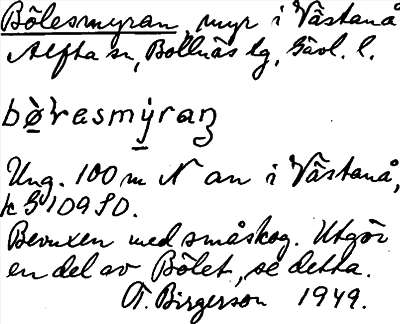 Bölesmyran, myr i Västanå
Alfta sn, Bollnäs tg, Gävl. l.
bø̀ɽasmy̆raṇ
Ung. 100 m N an i Västanå,
k G 109 SO.
Bevuxen med småskog. Utgör
en del av Bölet, se detta.
A. Birgerson 1949.